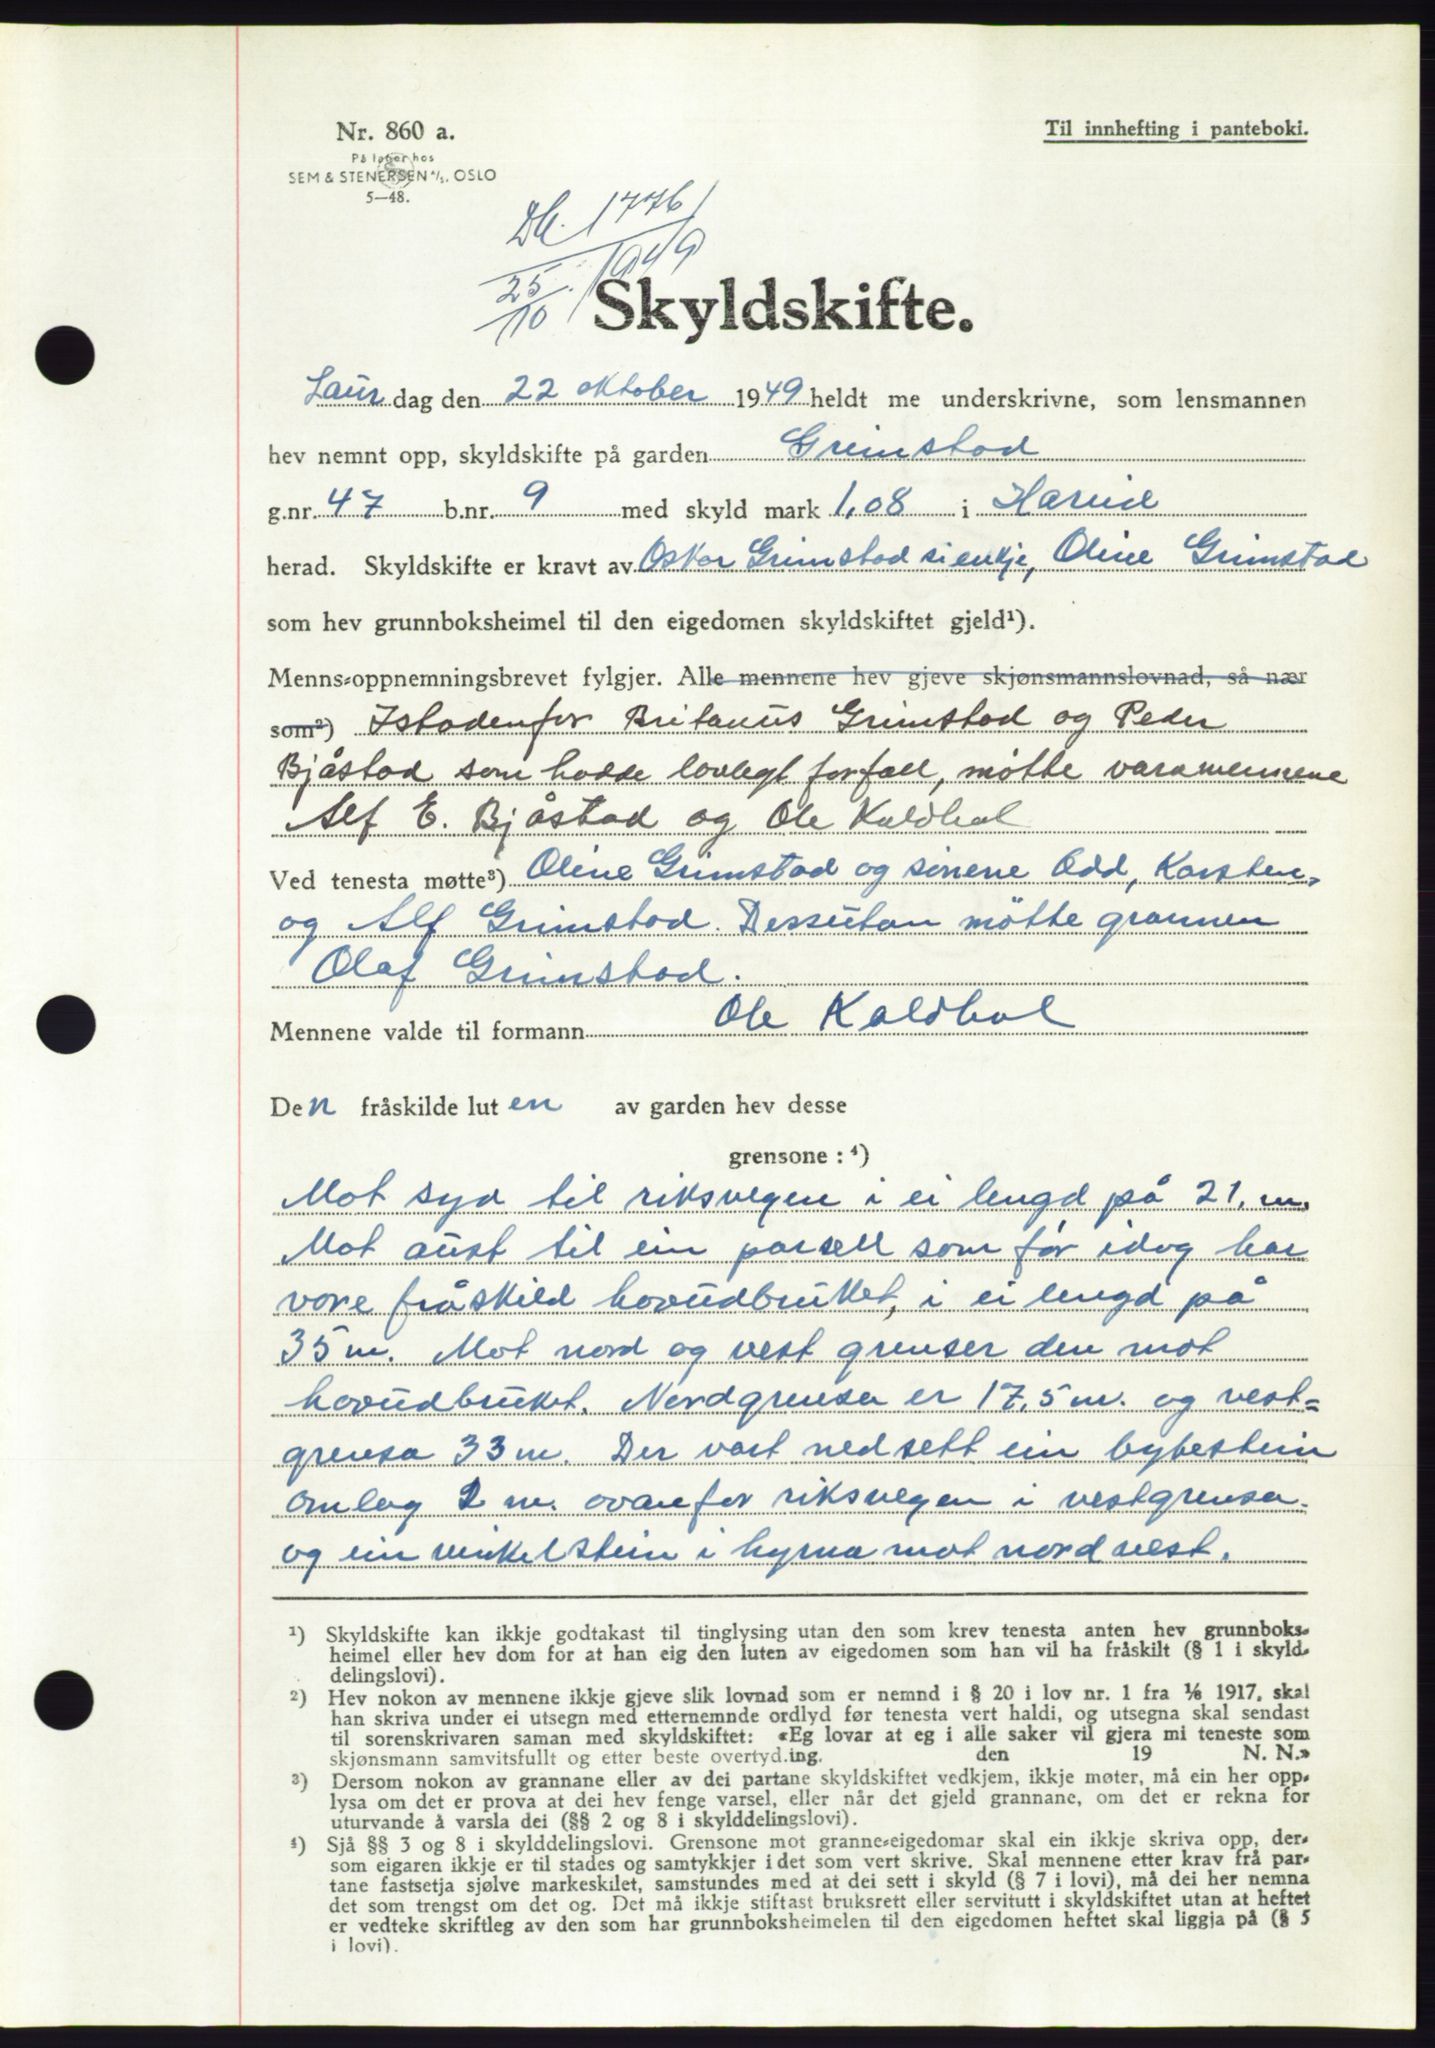 Nr. 860 a.
På lager hos
SEM & STENERSEN A/S, OSLO
5—48.
Til innhefting i panteboki.
Db. 1776/1949
25/10
Skyldskifte.
Laur dag den 22 oktober 1949 heldt me underskrivne, som lensmannen
hev nemnt opp, skyldskifte på garden Grimstad
g.nr. 47 b.nr. 9 med skyld mark 1,08 i Hareid
herad. Skyldskifte er kravt av Oskar Grimstad si enkje, Oline Grimstad
som hev grunnboksheimel til den eigedomen skyldskiftet gjeld¹).
Menns-oppnemningsbrevet fylgjer. Alle mennene hev gjeve skjønsmannslovnad, så nær
som²) Istadenfor Britanus Grimstad og Peder
Bjåstad som hadde lovlegt forfall, møtte varamennene
Alf E. Bjåstad og Ole Kaldhol
Ved tenesta møtte³) Oline Grimstad og sönene Odd, Karsten,
og Alf Grimstad. Dessutan mötte grannen
Olaf Grimstad.
Mennene valde til formann Ole Kaldhol
Den fråskilde luten av garden hev desse
grensone : ⁴)
Mot syd til riksvegen i ei lengd på 21. m.
Mot aust til ein parsell som før idag har
vore fråskild hovudbruket, i ei lengd på
35 m. Mot nord og vest grenser den mot
hovudbruket. Nordgrensa er 17,5 m. og vest=
grensa 33 m. Der vart nedsett ein bytestein
omlag 2 m. ovanfor riksvegen i vestgrensa.
og ein vinkelstein i hyrna mot nordvest.
¹) Skyldskifte kan ikkje godtakast til tinglysing utan den som krev tenesta anten hev grunnboks-
heimel eller hev dom for at han eig den luten av eigedomen som han vil ha fråskilt (§ 1 i skyld
delingslovi).
²) Hev nokon av mennene ikkje gjeve slik lovnad som er nemnd i § 20 i lov nr. 1 fra 1/6 1917, skal
han skriva under ei utsegn med etternemnde ordlyd før tenesta vert haldi, og utsegna skal sendast
til sorenskrivaren saman med skyldskiftet: «Eg lovar at eg i alle saker vil gjera mi teneste som
skjønsmann samvitsfullt og etter beste overtyd.ing. den 19 N. N.»
³) Dersom nokon av grannane eller av dei partane skyldskiftet vedkjem, ikkje møter, må ein her opp-
lysa om det er prova at dei hev fenge varsel, eller når det gjeld grannane, om det er rekna for
uturvande å varsla dei (§§ 2 og 8 i skylddelingslovi).
⁴) Sjå §§ 3 og 8 i skylddelingslovi. Grensone mot granne-eigedomar skal ein ikkje skriva opp, der-
som eigaren ikkje er til stades og samtykkjer i det som vert skrive. Skal mennene etter krav frå par-
tane fastsetja sjølve markeskilet, samstundes med at dei sett i skyld (§ 7 i lovi), må dei her nemna
det som trengst om det og. Det må ikkje stiftast bruksrett eller servitutt i skyldskiftet utan at heftet
er vedteke skriftleg av den som har grunnboksheimelen til den eigedomen heftet skal liggja på (§ 5
i lovi).